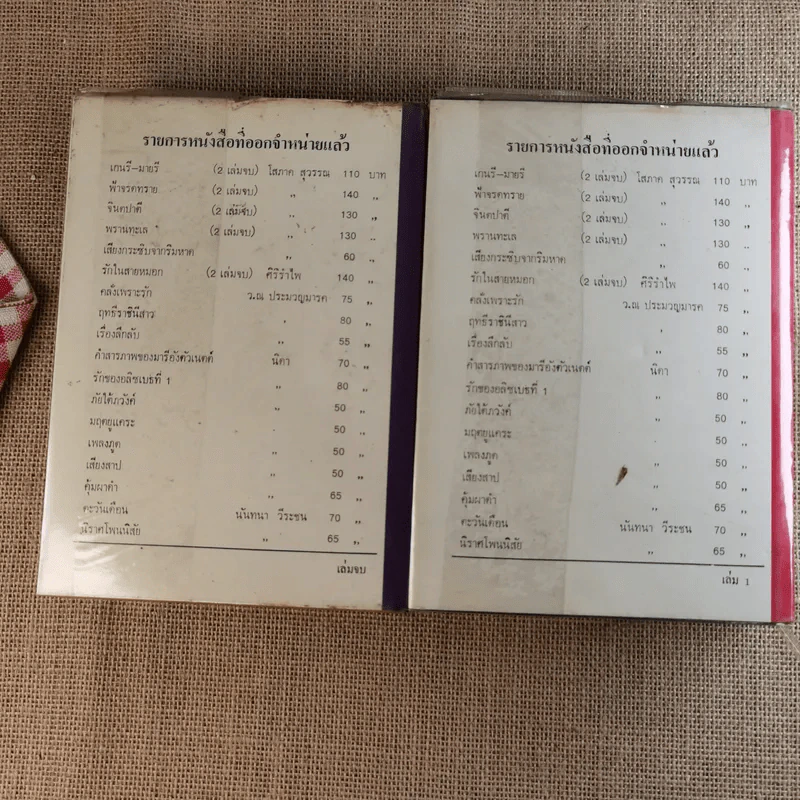 รายการหนังสือที่ออกจำหน่ายแล้ว
เกนรี-มายรี (2 เล่มจบ) โสภาค สุวรรณ 110 บาท
ฟ้าจรดทราย (2 เล่มจบ) ,, 140 ,,
จินตปาตี (2 เล่มจบ) ,, 130 ,,
พรานทะเล (2 เล่มจบ) ,, 130 ,,
เสียงกระซิบจากริมหาด ,, 60 ,,
รักในสายหมอก (2 เล่มจบ) ศิริรำไพ 140 ,,
คลั่งเพราะรัก ว.ณ ประมวญมารค 75 ,,
ฤทธีราชินีสาว ,, 80 ,,
เรื่องลึกลับ ,, 55 ,,
คำสารภาพของมารีอังตัวเนตต์ นิดา 70 ,,
รักของอลิซเบธที่ 1 ,, 80 ,,
ภัยใต้ภวังค์ 50 ,,
มฤตยูแคระ 50 ,,
เพลงภูต ,, 50 ,,
เสียงสาป ,, 50 ,,
คุ้มผาคำ ,, 65 ,,
ตะวันเตือน นันทนา วีระชน 70 ,,
นิราศโพนพิสัย ,, 65 ,,
เล่มจบ
รายการหนังสือที่ออกจำหน่ายแล้ว
เกนรี-มายรี (2 เล่มจบ) โสภาค สุวรรณ 110 บาท
ฟ้าจรดทราย (2 เล่มจบ) ,, 140 ,,
จินตปาตี (2 เล่มจบ) ,, 130 ,,
พรานทะเล (2 เล่มจบ) ,, 130 ,,
เสียงกระซิบจากริมหาด ,, 60 ,,
รักในสายหมอก (2 เล่มจบ) ศิริรำไพ 140 ,,
คลั่งเพราะรัก ว.ณ ประมวญมารค 75 ,,
ฤทธีราชินีสาว ,, 80 ,,
เรื่องลึกลับ ,, 55 ,,
คำสารภาพของมารีอังตัวเนตต์ นิดา 70 ,,
รักของอลิซเบธที่ 1 ,, 80 ,,
ภัยใต้ภวังค์ ,, 50 ,,
มฤตยูแคระ 50 ,,
เพลงภูต ,, 50 ,,
เสียงสาป ,, 50 ,,
คุ้มผาคำ ,, 65 ,,
ตะวันเตือน นันทนา วีระชน 70 ,,
นิราศโพนพิสัย ,, 65 ,,
เล่ม 1